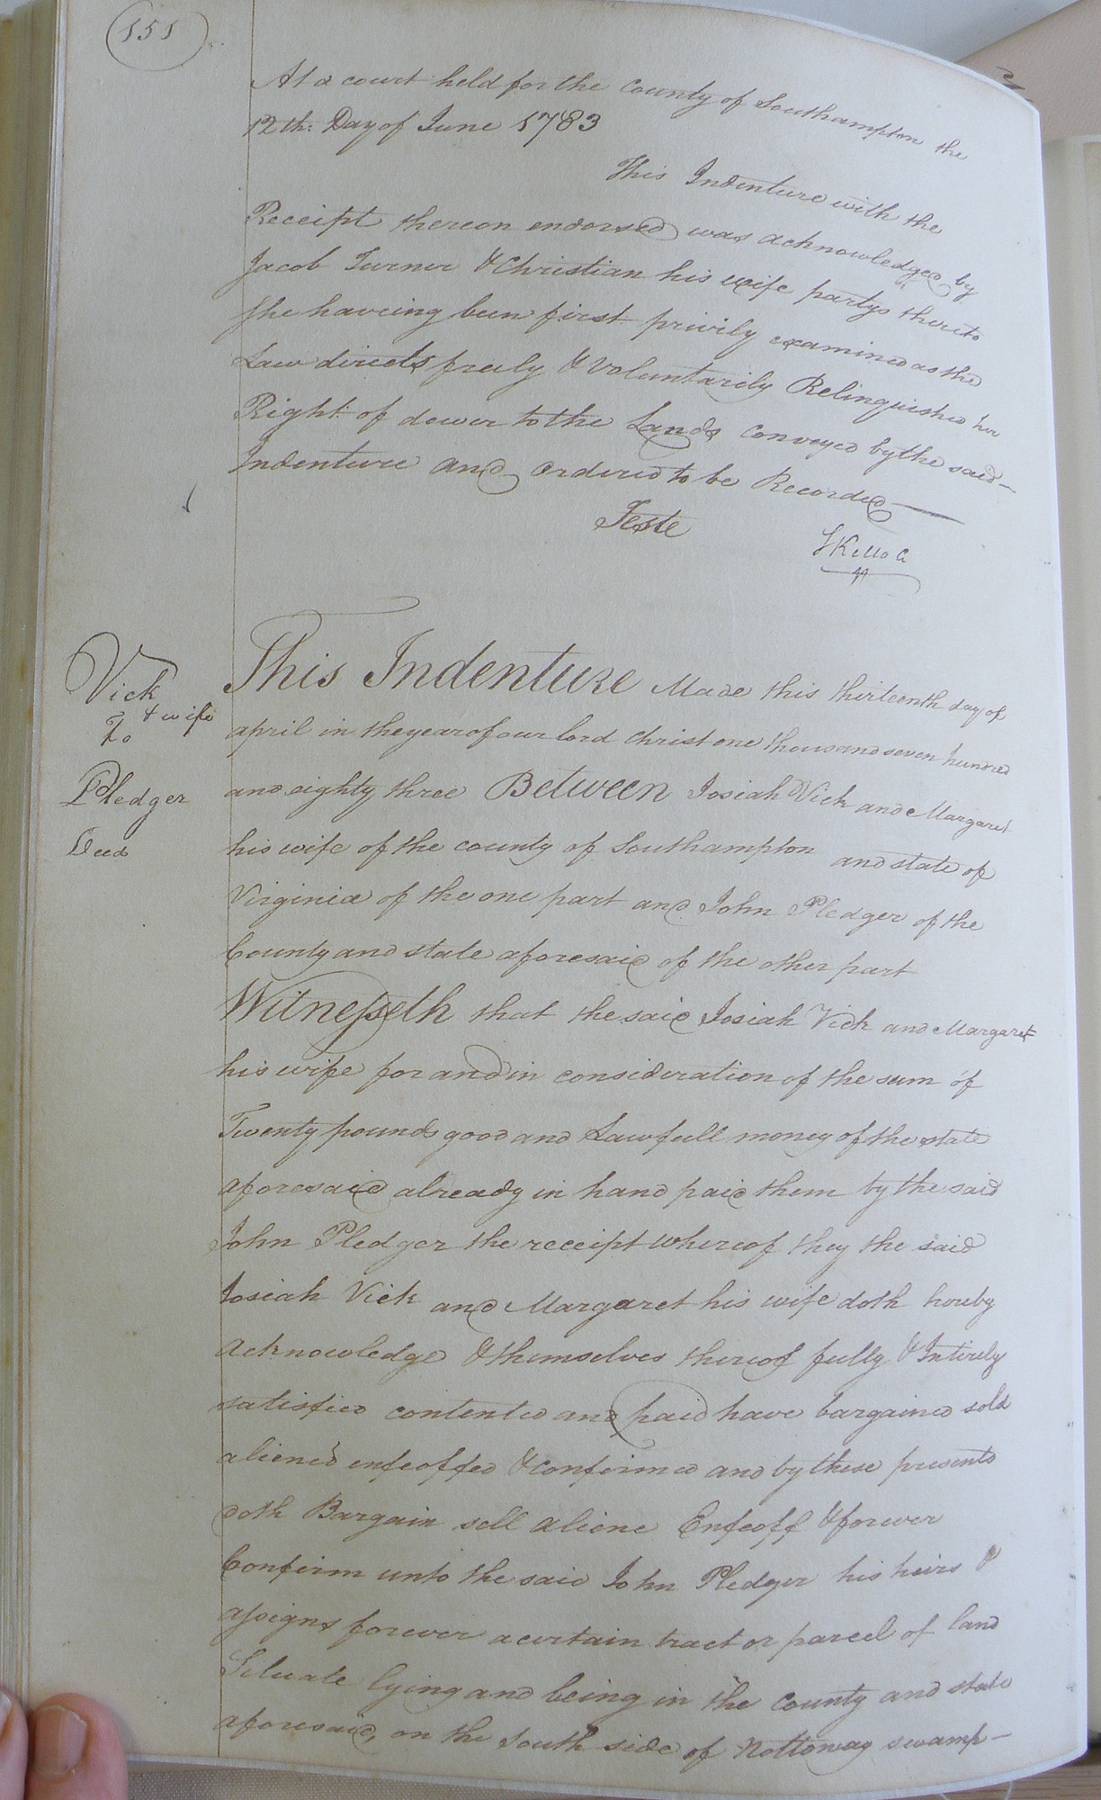 151
At a court held for the County of Southampton the
12th: Day of June 1783
This Indenture with the
Receipt thereon endorsed was acknowledged by
Jacob Turner & Christian his wife partys thereto
she haveing been first privily examined as the
Law directs freely & Voluntarily Relinquished her
Right of dower to the Lands conveyed by the said
Indenture and ordered to be Recorded
Teste
SKello C
Vick
& wife
To
Pledger
Deed
This Indenture Made this thirteenth day of
april in the year of our lord christ one thousand seven hundred
and eighty three Between Josiah Vick and Margaret
his wife of the county of Southampton and state of
Virginia of the one part and John Pledger of the
County and state aforesaid of the other part
Witnesseth that the said Josiah Vick and Margaret
his wife for and in consideration of the sum of
Twenty pounds good and Lawfull money of the state
aforesaid already in hand paid them by the said
John Pledger the receipt whereof they the said
Josiah Vick and Margaret his wife doth hereby
acknowledge & themselves thereof fully & Intirely
satisfied contented and paid have bargained sold
aliened enfeoffed & confirmed and by these presents
doth Bargain sell aliene Enfeoff & forever
Confirm unto the said John Pledger his heirs &
assigns forever a certain tract or parcel of land
Situate lying and being in the County and state
aforesaid, on the South side of Nottoway swamp